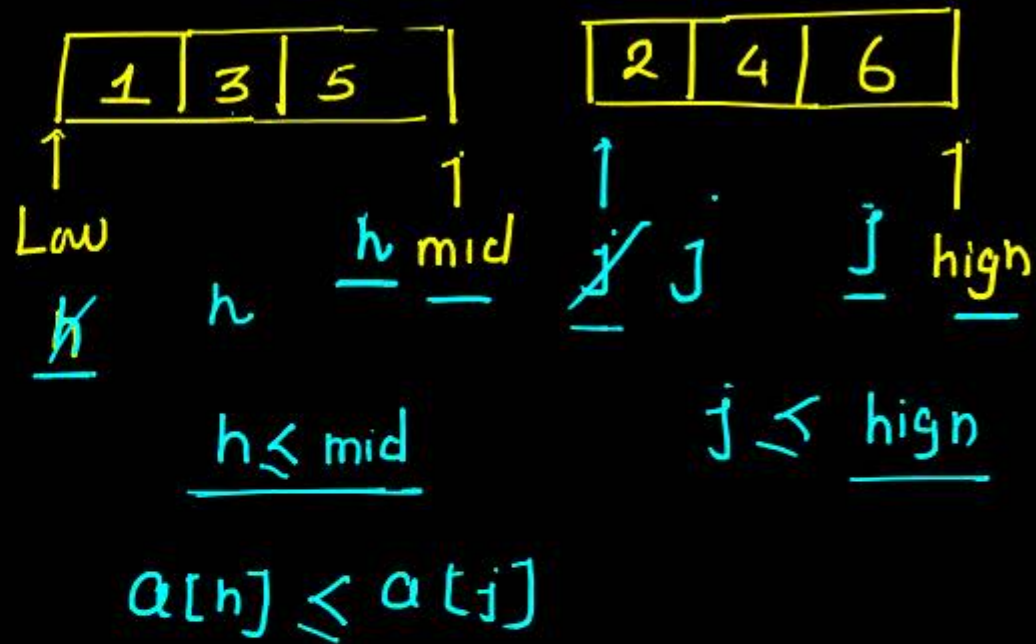 1 3 5 2 4 6
Low h mid j j j hign
h h
h ≤ mid j ≤ hign
a[h] ≤ a[j]